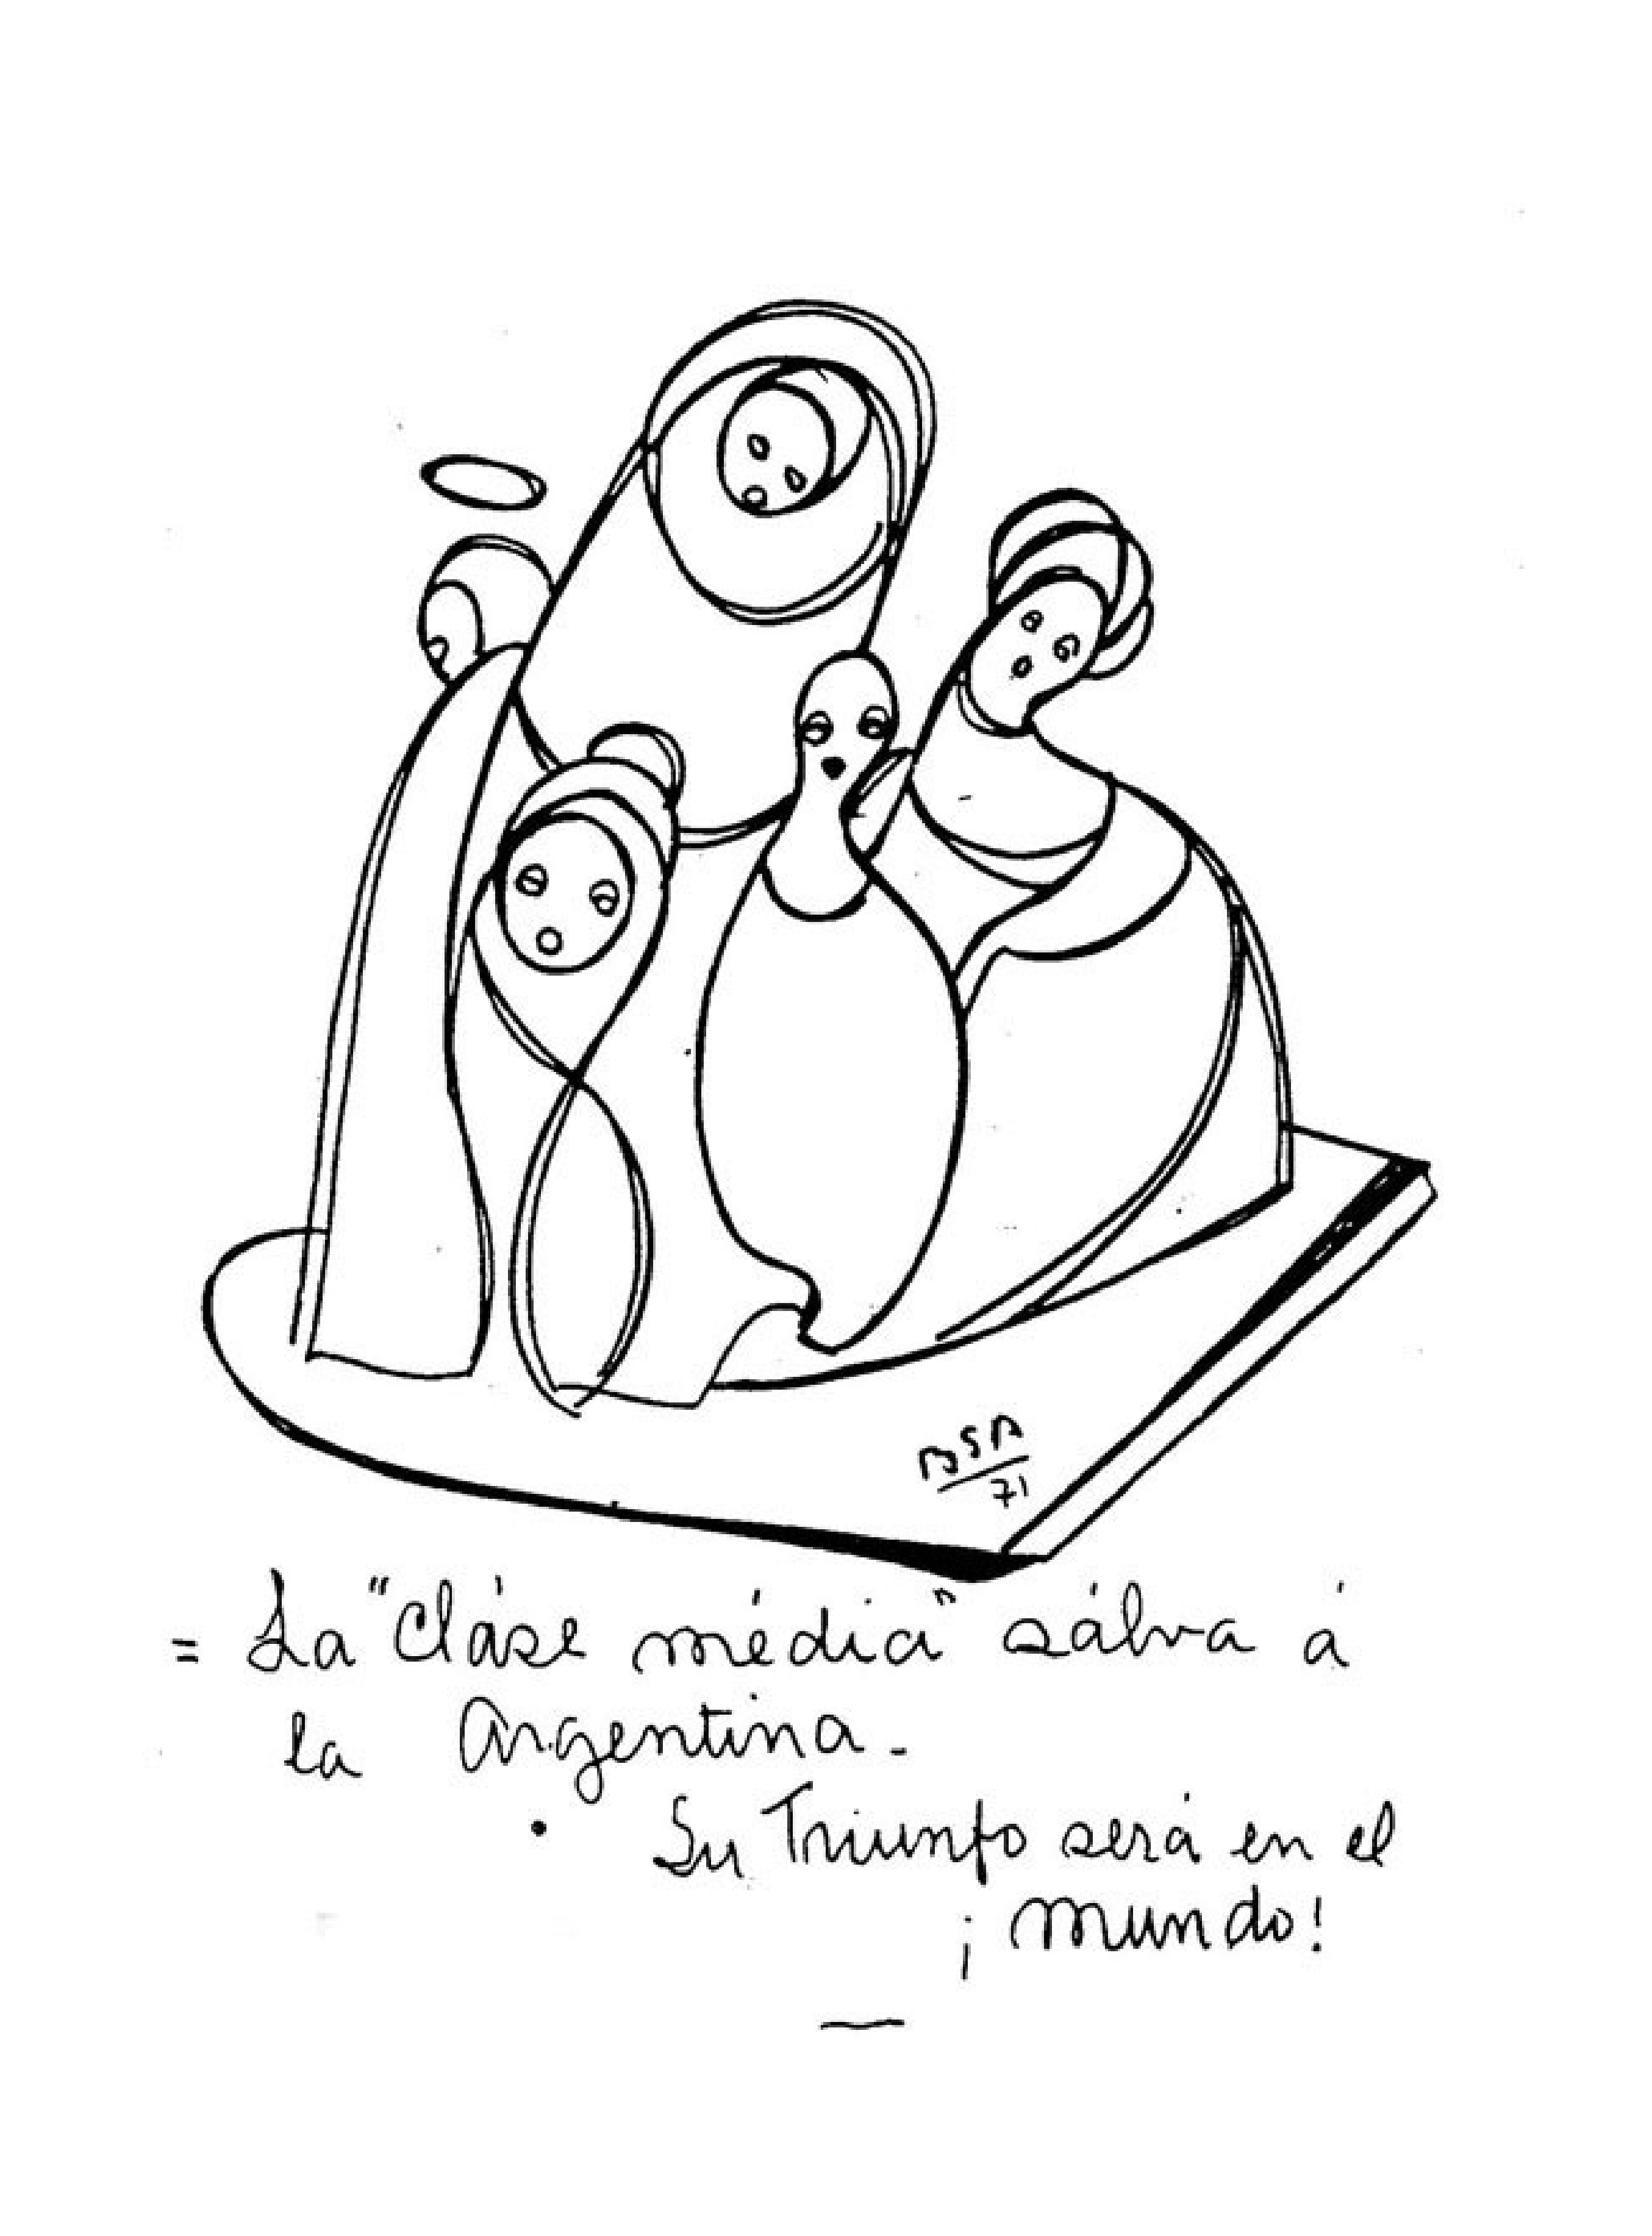 BSA
71
= La "Cláse média" sálva á
la Argentina.-
• Su Triunfo será en el
¡Mundo!